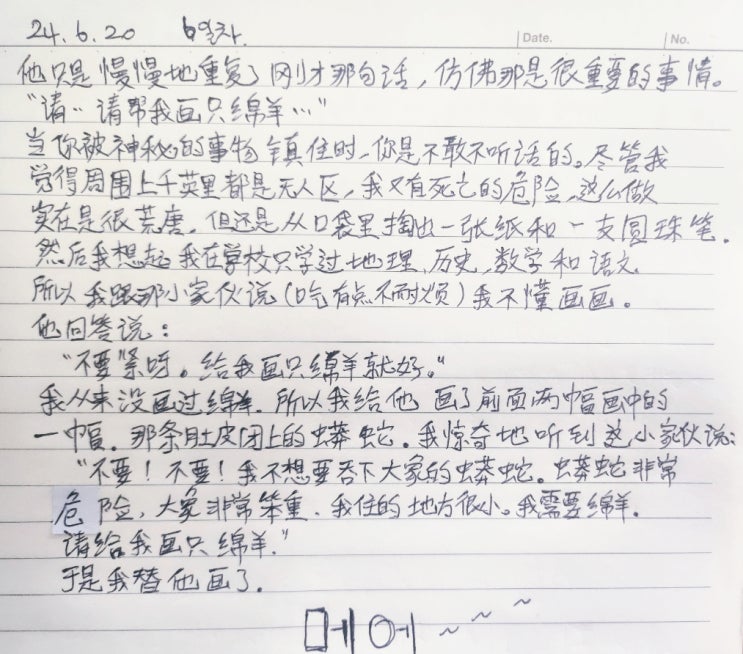 24.6.20 6일차
Date.
No.
他只是慢慢地重复了刚才那句话，仿佛那是很重要的事情。
“请‥请帮我画只绵羊…”
当你被神秘的事物镇住时，你是不敢不听话的。尽管我
觉得周围上千英里都是无人区，我又有死亡的危险，这么做
实在是很荒唐，但还是从口袋里掏出一张纸和一支圆珠笔。
然后我想起我在学校只学过地理，历史，数学和语文
所以我跟那小家伙说（口气有点不耐烦）我不懂画画。
他回答说：
“不要紧呀。给我画只绵羊就好。”
我从来没画过绵羊．所以我给他画了前面两幅画中的
一幅．那条肚皮闭上的蟒蛇。我惊奇地听到这小家伙说：
“不要！不要！我不想要吞下大象的蟒蛇。蟒蛇非常
危险，大象非常笨重．我住的地方很小。我需要绵羊．
请给我画只绵羊．”
于是我替他画了．
메에~~~